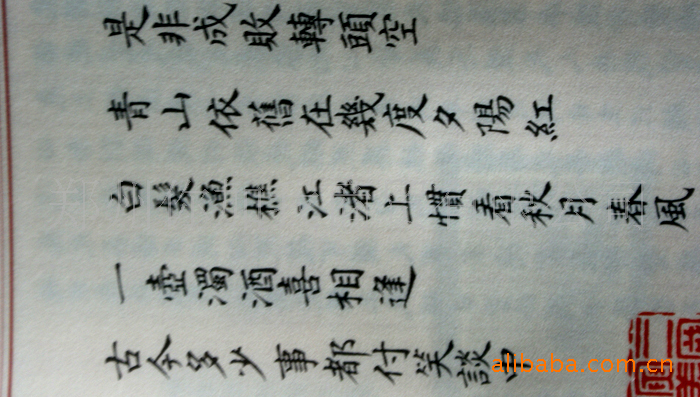 是非成敗轉頭空
青山依舊在幾度夕陽紅
白髮漁樵江渚上慣看秋月春風
一壺濁酒喜相逢
古今多少事都付笑談中
alibaba.com.cn